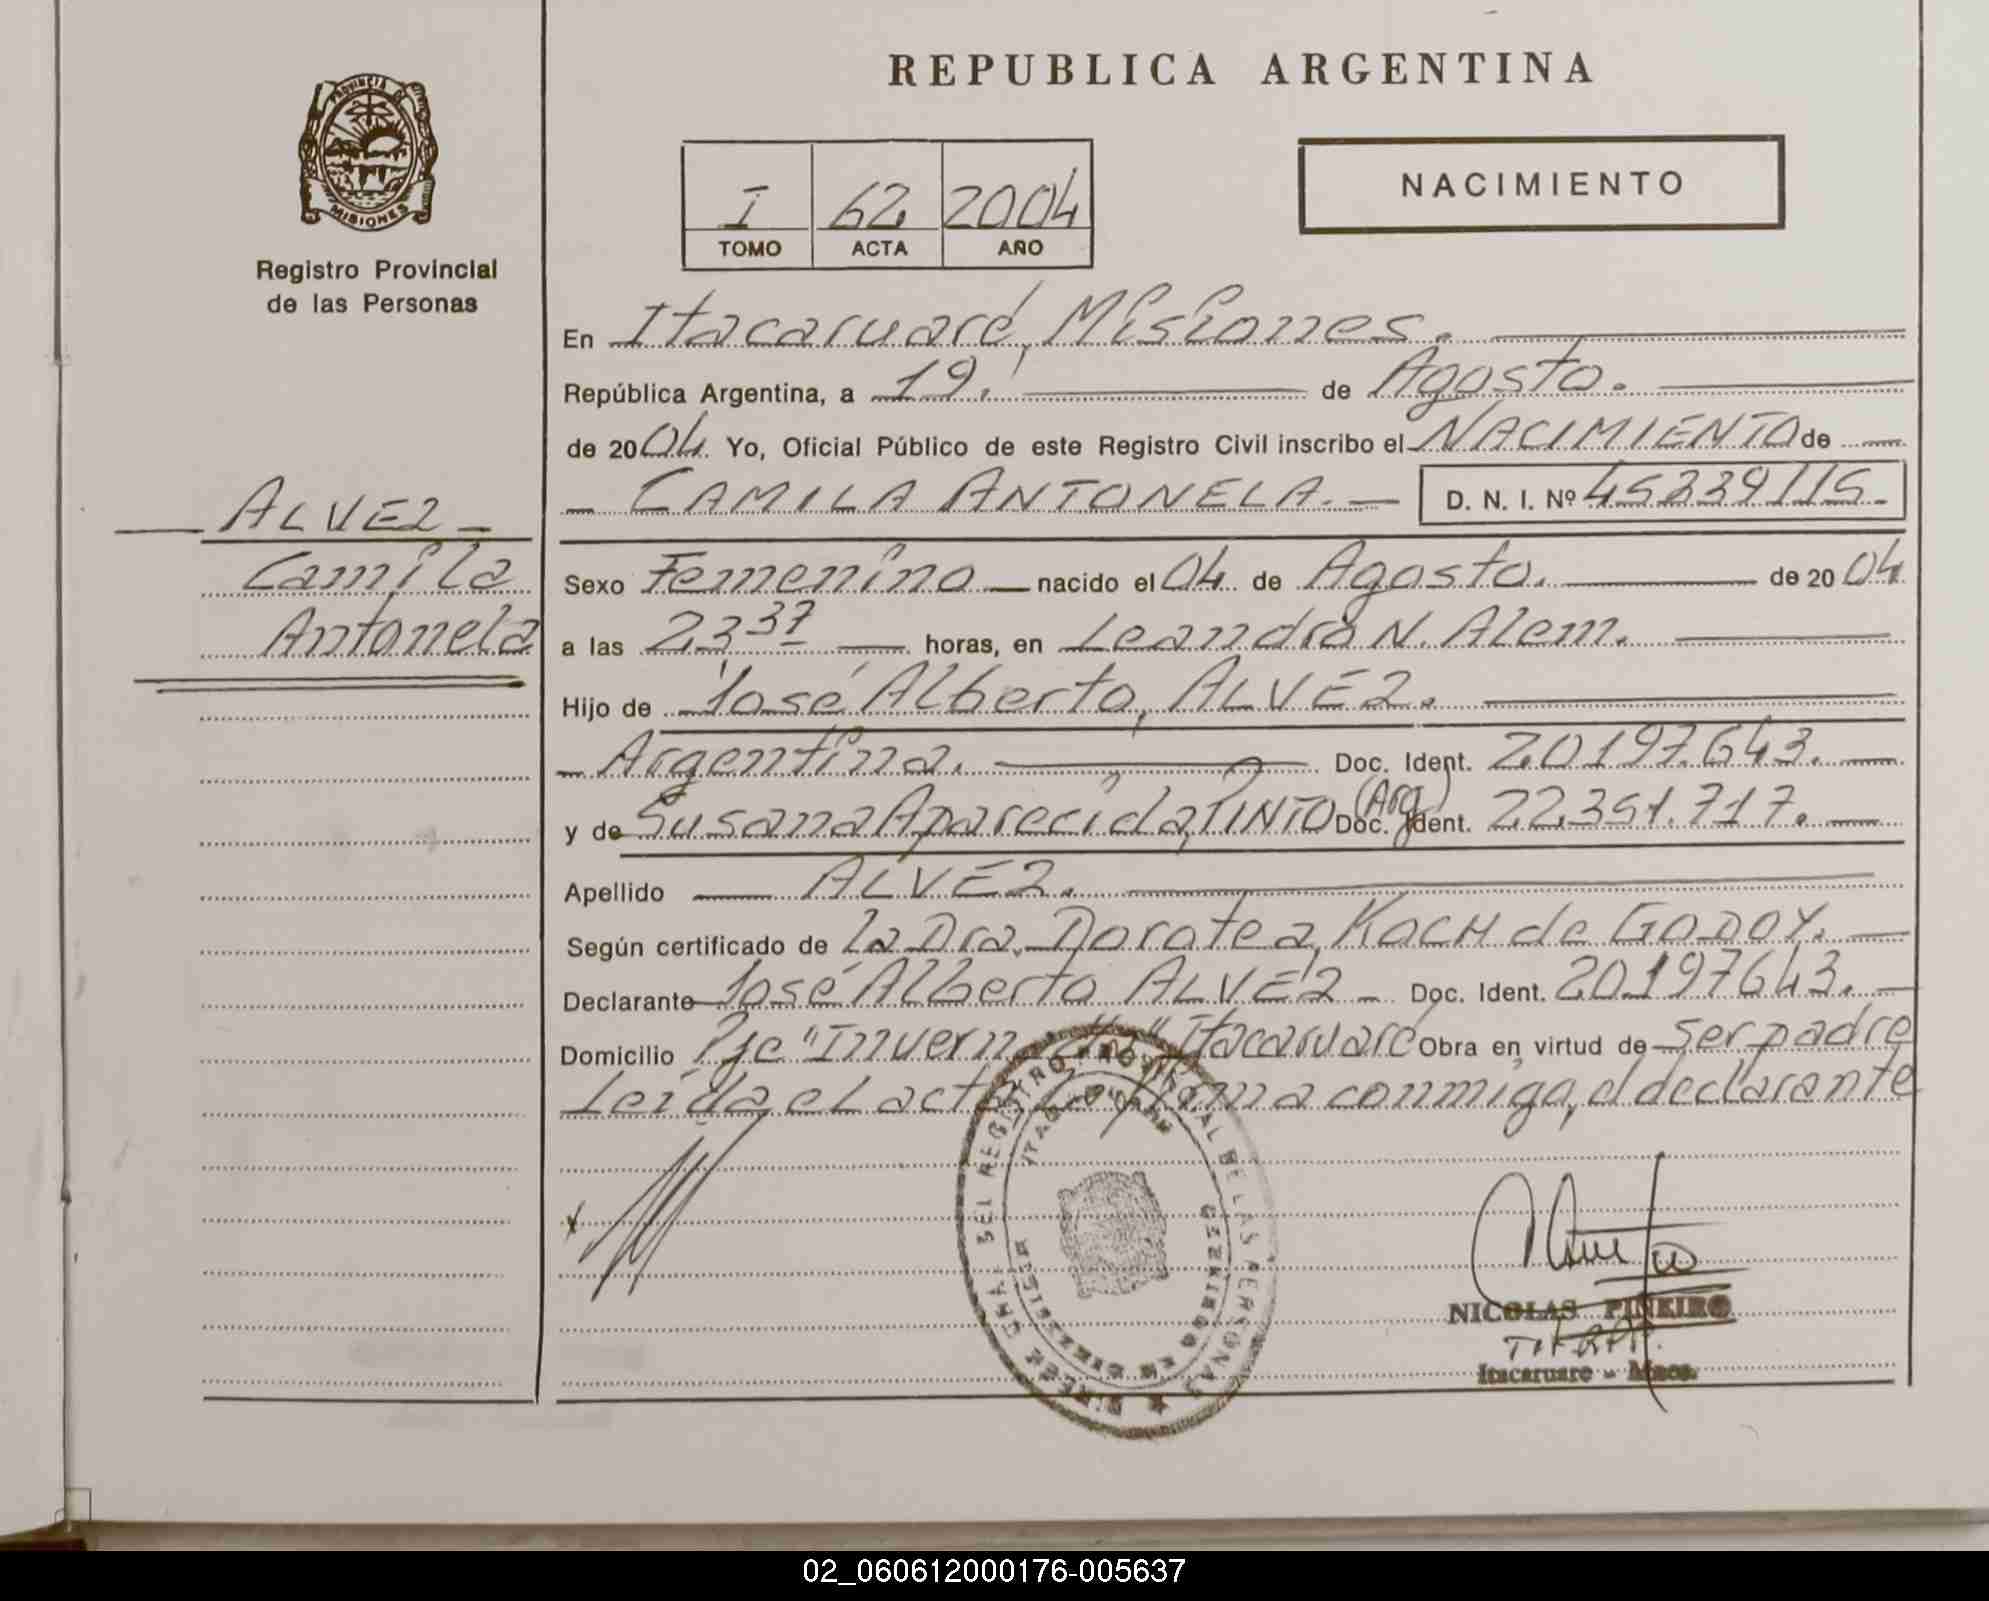 REPUBLICA ARGENTINA
PROVINCIA DE MISIONES
Registro Provincial
de las Personas
I 62 2004
TOMO ACTA AÑO
NACIMIENTO
En Itacaruaré, Misiones.
República Argentina, a 19. de Agosto.
de 2004. Yo, Oficial Público de este Registro Civil inscribo el NACIMIENTO de
CAMILA ANTONELA. D. N. I. Nº 45239115
ALVEZ
Camila
Antonela
Sexo Femenino nacido el 04 de Agosto. de 2004
a las 23 37 horas, en Leandro N. Alem.
Hijo de José Alberto, ALVEZ.
Argentina. Doc. Ident. 20197.643.
y de Susana Aparecida, PINTO (Arg) Doc. Ident. 22.351.717.
Apellido ALVEZ.
Según certificado de la Dra. Dorotea, KOCH de GODOY.
Declarante José Alberto ALVEZ - Doc. Ident. 20.197643.
Domicilio Pje "Itacaruaré Obra en virtud de ser padre
Leída el acta firma conmigo, el declarante
NICOLAS PINEIRO
Itacaruare - Mnes.
02_060612000176-005637